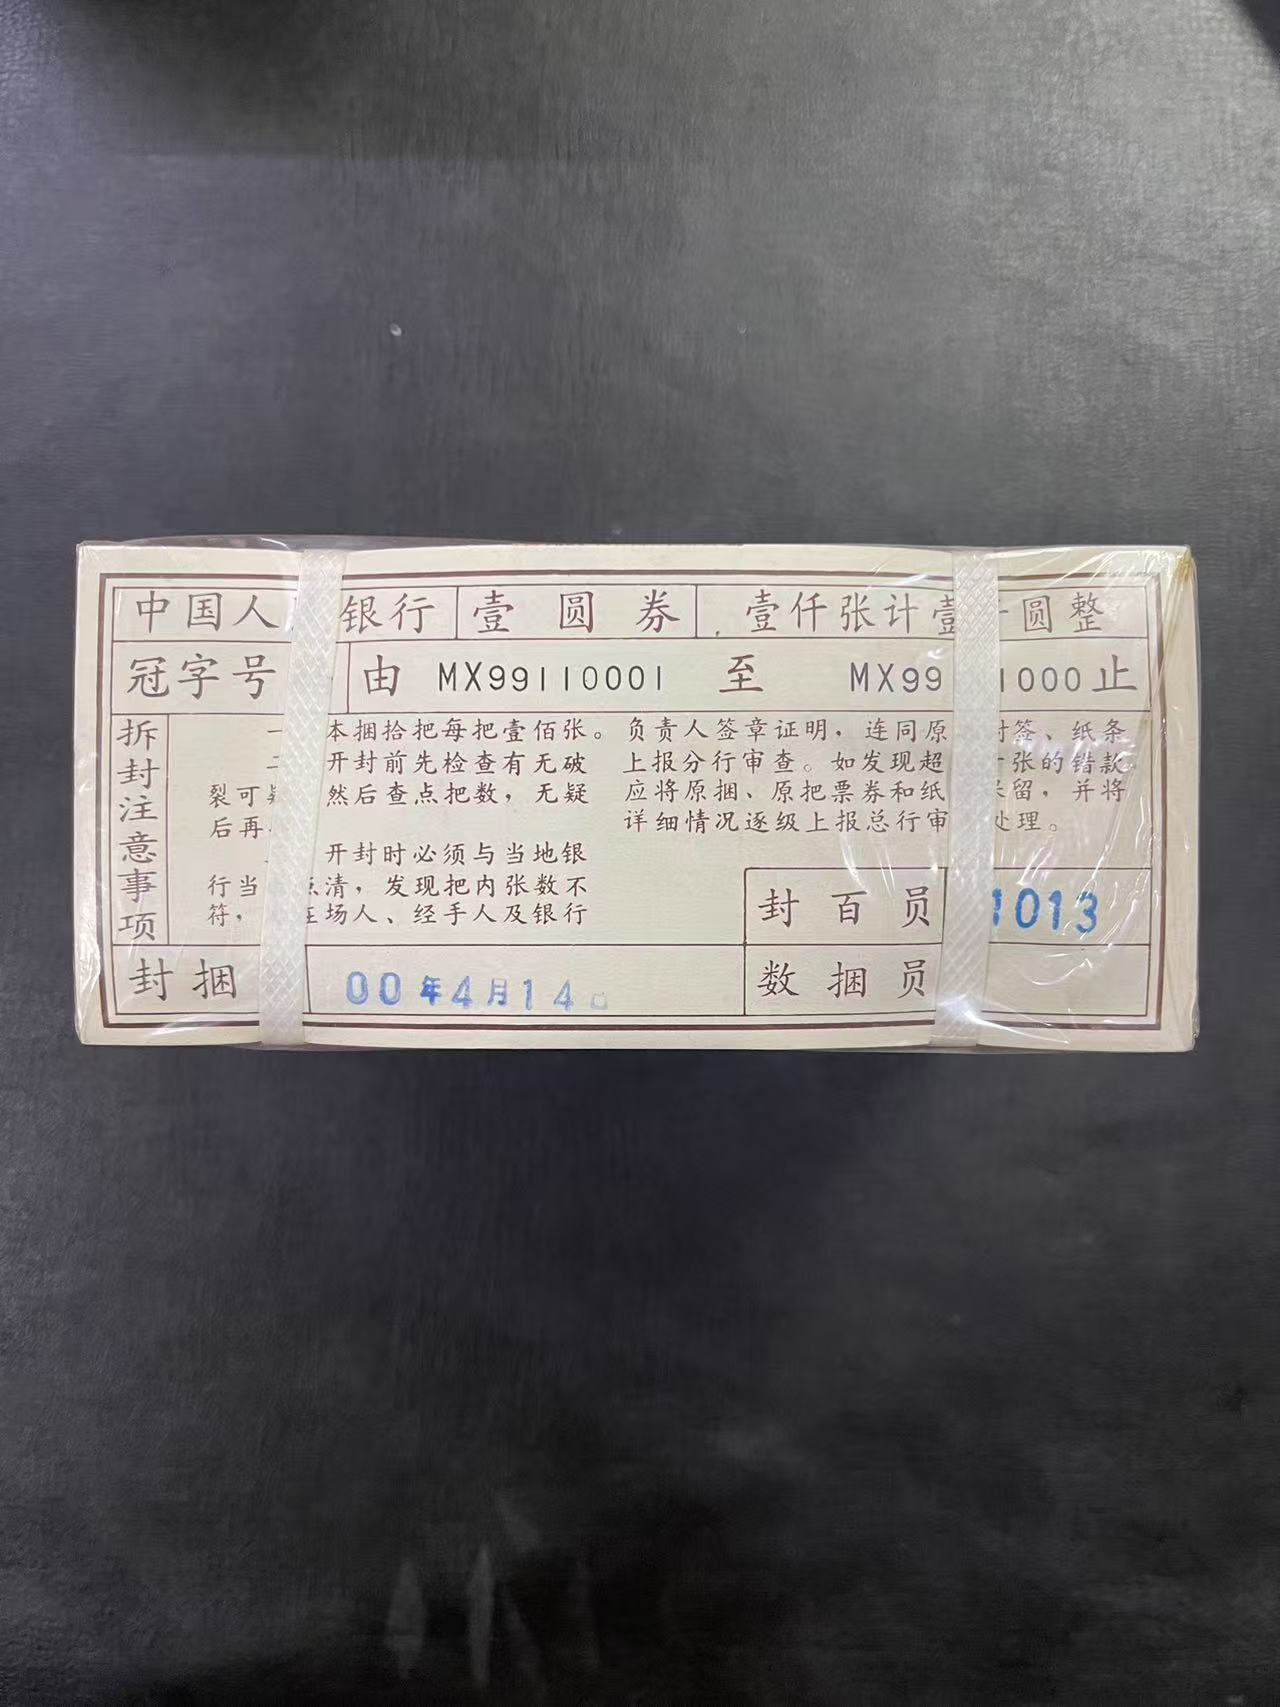 中国人 银行 壹圆券 壹仟张计壹 圆整
冠字号 由 MX99110001 至 MX99 1000 止
拆封注意事项
一 本捆拾把每把壹佰张。
二 开封前先检查有无破
裂可疑 然后查点把数，无疑
后再
开封时必须与当地银
行当 点清，发现把内张数不
符， 在场人、经手人及银行
负责人签章证明，连同原 封签、纸条
上报分行审查。如发现超 十张的错款
应将原捆、原把票券和纸 保留，并将
详细情况逐级上报总行审 处理。
封百员 1013
封捆 00年4月14日 数捆员